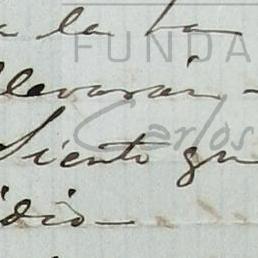 a la ta
llevarán -
Siento qu
idio
FUNDA
Carlos